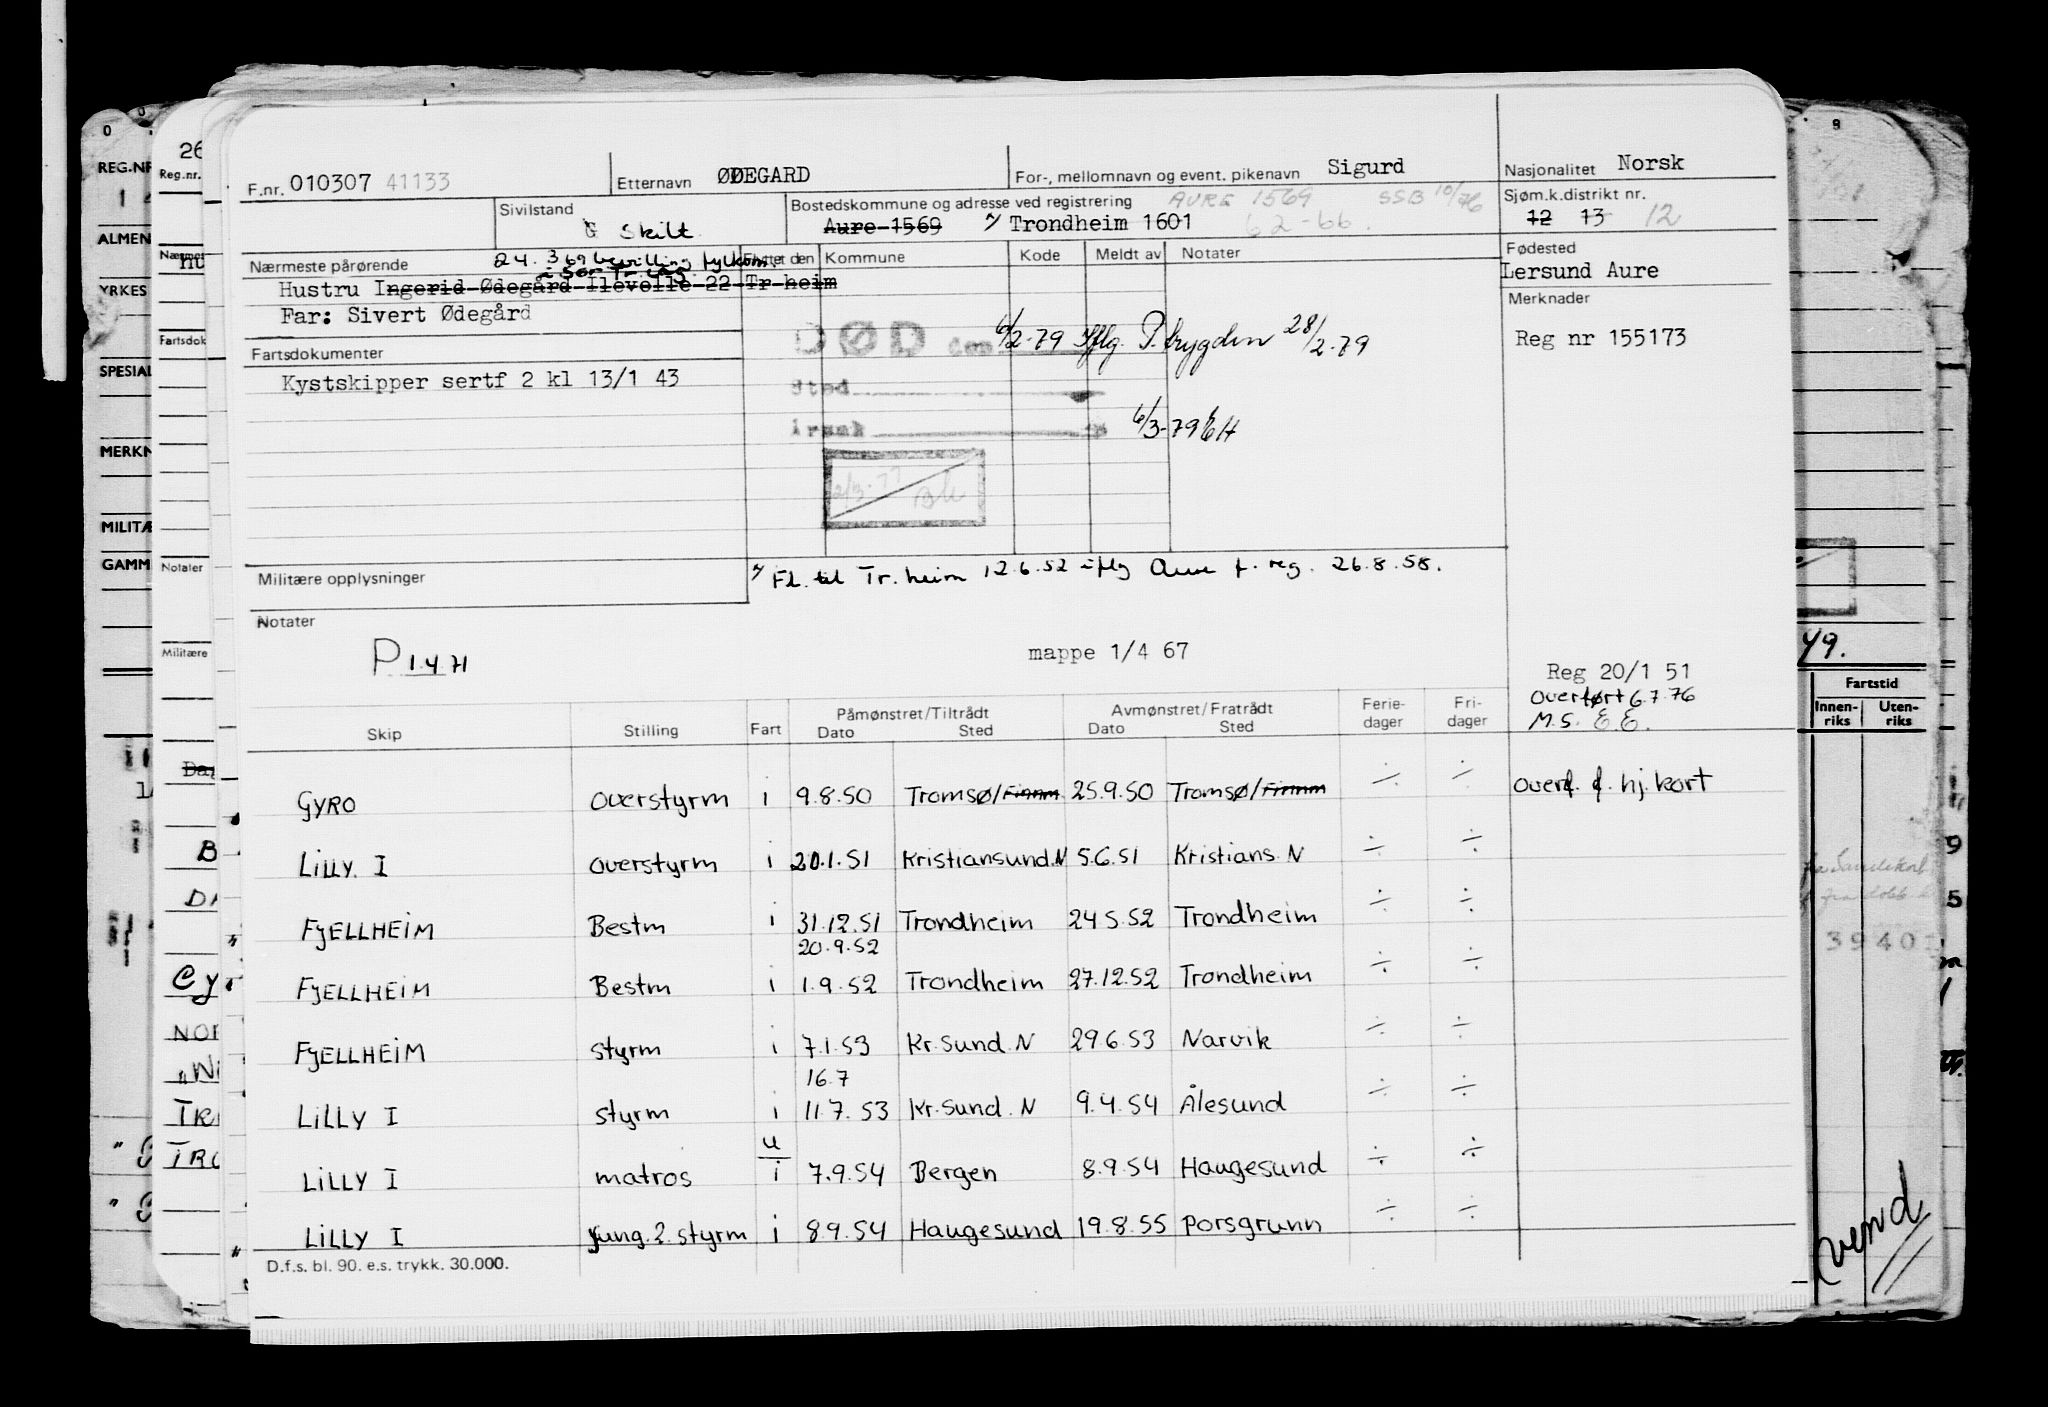 F.nr. 010307 41133
Etternavn ØDEGARD
For-, mellomnavn og event. pikenavn Sigurd
Nasjonalitet Norsk
Sivilstand
G Skilt
Bostedskommune og adresse ved registrering AURE 1569 SSB 10/76
Aure 1569 Trondheim 1601 62-66.
Sjøm.k.distrikt nr.
12 13 12
Nærmeste pårørende 24.3 69 bevilling fylkesm.
i Sør Tr.lag
Hustru Ingerid Ødegård Ilevolle 22 Tr heim
Far: Sivert Ødegård
Flyttet den Kommune Kode Meldt av Notater
Fødested
Lersund Aure
Merknader
Reg nr 155173
DØD den 6/2-79 Iflg. P.trygden 28/2-79
Sted
Årsak
6/3-79
Fartsdokumenter
Kystskipper sertf 2 kl 13/1 43
Militære opplysninger
Fl. til Tr.heim 12.6.52 iflg Aure f. reg. 26.8.58.
Notater
P 1.4.71
mappe 1/4 67
Reg 20/1 51
overført 6.7.76
M.S. E.E.
Skip Stilling Fart Påmønstret/Tiltrådt Dato Sted Avmønstret/Fratrådt Dato Sted Ferie-dager Fri-dager
GYRO overstyrm i 9.8.50 Tromsø/Finnm 25.9.50 Tromsø/Finnm ÷ ÷ overf. f. hj.kort
LILLY I overstyrm i 20.1.51 Kristiansund.N 5.6.51 Kristians.N ÷ ÷
FJELLHEIM Bestm i 31.12.51 Trondheim 24.5.52 Trondheim ÷ ÷
20.9.52
FJELLHEIM Bestm i 1.9.52 Trondheim 27.12.52 Trondheim ÷ ÷
FJELLHEIM styrm i 7.1.53 Kr.Sund.N 29.6.53 Narvik ÷ ÷
16.7
LILLY I styrm i 11.7.53 Kr.Sund.N 9.4.54 Ålesund ÷ ÷
LILLY I matros u/i 7.9.54 Bergen 8.9.54 Haugesund ÷ ÷
LILLY I fung.2.styrm i 8.9.54 Haugesund 19.8.55 Porsgrunn ÷ ÷
D.f.s. bl. 90. e.s. trykk. 30.000.
REG.NR
ALMEN
YRKES
SPESIAL
MERKN
MILITÆ
GAMM
26
Reg.nr.
Nærmes
Fartsdok
Notater
Militære
49.
Fartstid
Innen-riks Uten-riks
39401
vend